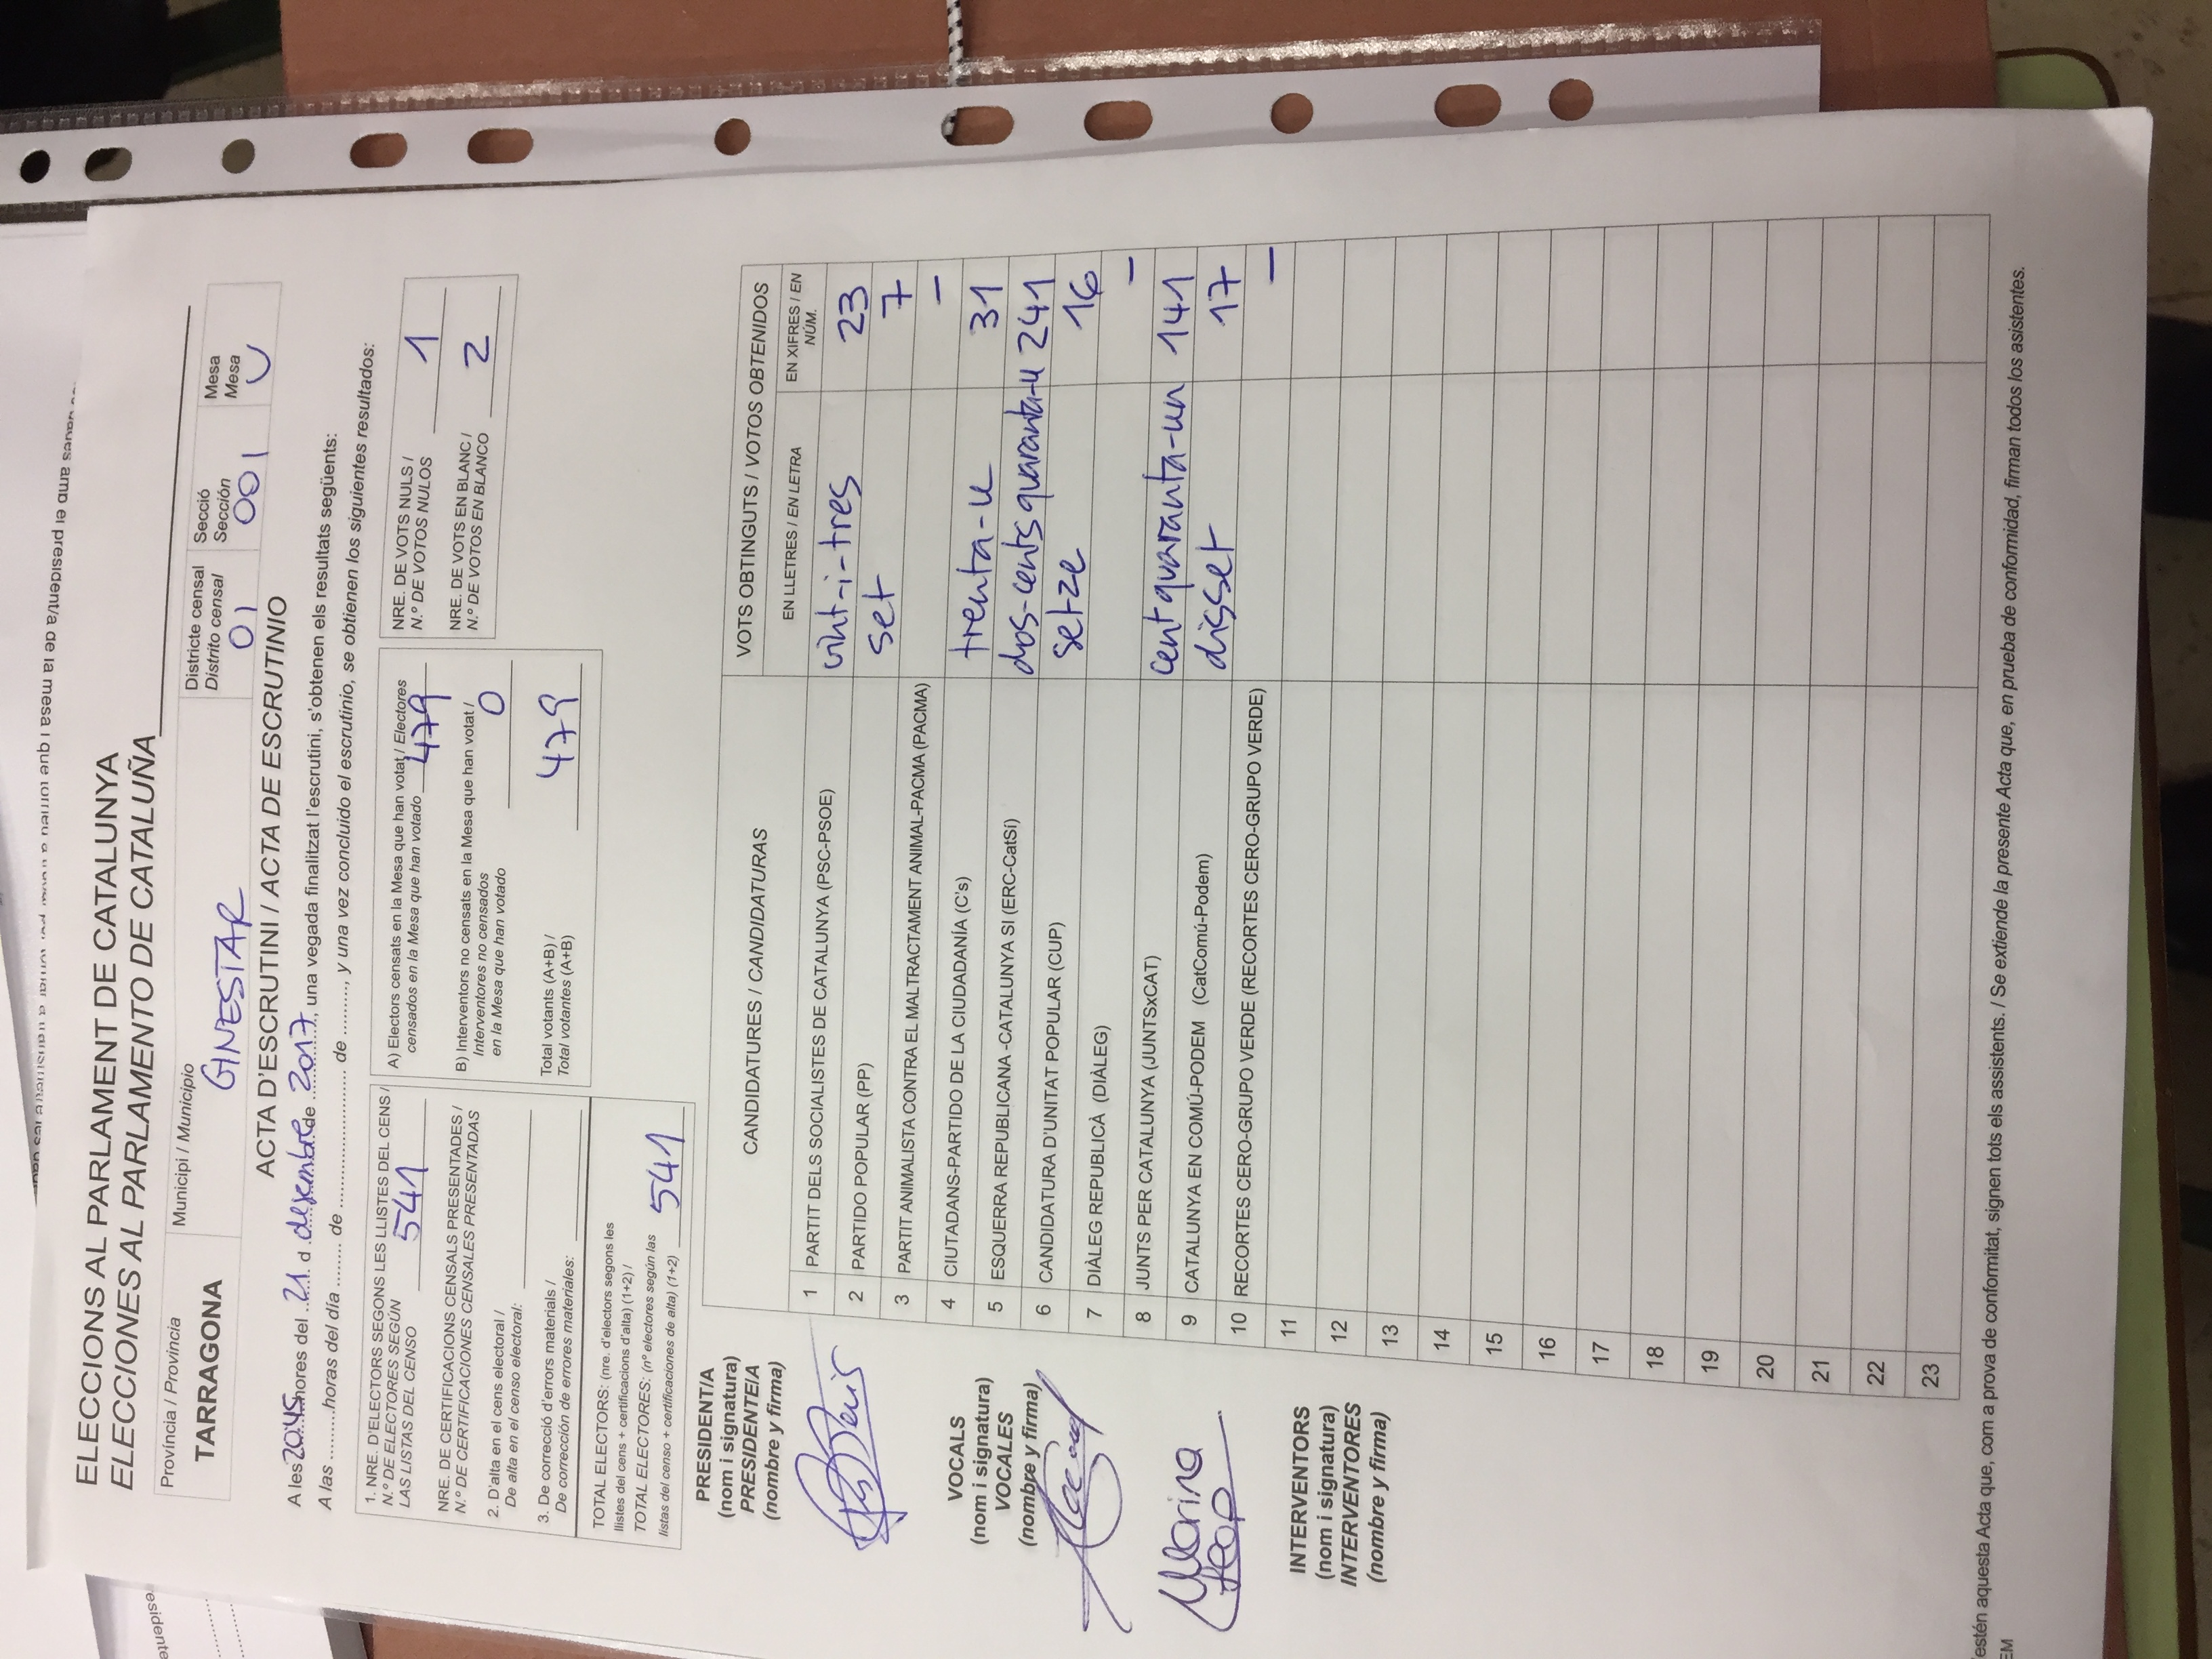 ELECCIONS AL PARLAMENT DE CATALUNYA
ELECCIONES AL PARLAMENTO DE CATALUÑA
Província / Provincia
TARRAGONA
Municipi / Municipio
GINESTAR
Districte censal
Distrito censal
01
Secció
Sección
001
Mesa
Mesa
U
ACTA D'ESCRUTINI / ACTA DE ESCRUTINIO
A les 20:45 hores del 21 d desembre de 2017, una vegada finalitzat l'escrutini, s'obtenen els resultats següents:
A las .........horas del día ........ de ......................... de ........., y una vez concluido el escrutinio, se obtienen los siguientes resultados:
1. NRE. D'ELECTORS SEGONS LES LLISTES DEL CENS /
N.º DE ELECTORES SEGÚN
LAS LISTAS DEL CENSO 541
NRE. DE CERTIFICACIONS CENSALS PRESENTADES /
N.º DE CERTIFICACIONES CENSALES PRESENTADAS
2. D'alta en el cens electoral /
De alta en el censo electoral:
3. De correcció d'errors materials /
De corrección de errores materiales:
TOTAL ELECTORS: (nre. d'electors segons les
llistes del cens + certificacions d'alta) (1+2) /
TOTAL ELECTORES: (nº electores según las
listas del censo + certificaciones de alta) (1+2) 541
A) Electors censats en la Mesa que han votat / Electores
censados en la Mesa que han votado 479
B) Interventors no censats en la Mesa que han votat /
Interventores no censados
en la Mesa que han votado 0
Total votants (A+B) /
Total votantes (A+B) 479
NRE. DE VOTS NULS /
N.º DE VOTOS NULOS 1
NRE. DE VOTS EN BLANC /
N.º DE VOTOS EN BLANCO 2
PRESIDENT/A
(nom i signatura)
PRESIDENTE/A
(nombre y firma)
VOCALS
(nom i signatura)
VOCALES
(nombre y firma)
Marina
INTERVENTORS
(nom i signatura)
INTERVENTORES
(nombre y firma)
CANDIDATURES / CANDIDATURAS
VOTS OBTINGUTS / VOTOS OBTENIDOS
EN LLETRES / EN LETRA
EN XIFRES / EN
NÚM.
1 PARTIT DELS SOCIALISTES DE CATALUNYA (PSC-PSOE) vint-i-tres 23
2 PARTIDO POPULAR (PP) set 7
3 PARTIT ANIMALISTA CONTRA EL MALTRACTAMENT ANIMAL-PACMA (PACMA) –
4 CIUTADANS-PARTIDO DE LA CIUDADANÍA (C's) trenta-u 31
5 ESQUERRA REPUBLICANA -CATALUNYA SI (ERC-CatSí) dos-cents quaranta-u 241
6 CANDIDATURA D'UNITAT POPULAR (CUP) setze 16
7 DIÀLEG REPUBLICÀ (DIÀLEG) –
8 JUNTS PER CATALUNYA (JUNTSxCAT) cent quaranta-un 141
9 CATALUNYA EN COMÚ-PODEM (CatComú-Podem) disset 17
10 RECORTES CERO-GRUPO VERDE (RECORTES CERO-GRUPO VERDE) –
11
12
13
14
15
16
17
18
19
20
21
22
23
estén aquesta Acta que, com a prova de conformitat, signen tots els assistents. / Se extiende la presente Acta que, en prueba de conformidad, firman todos los asistentes.
EM